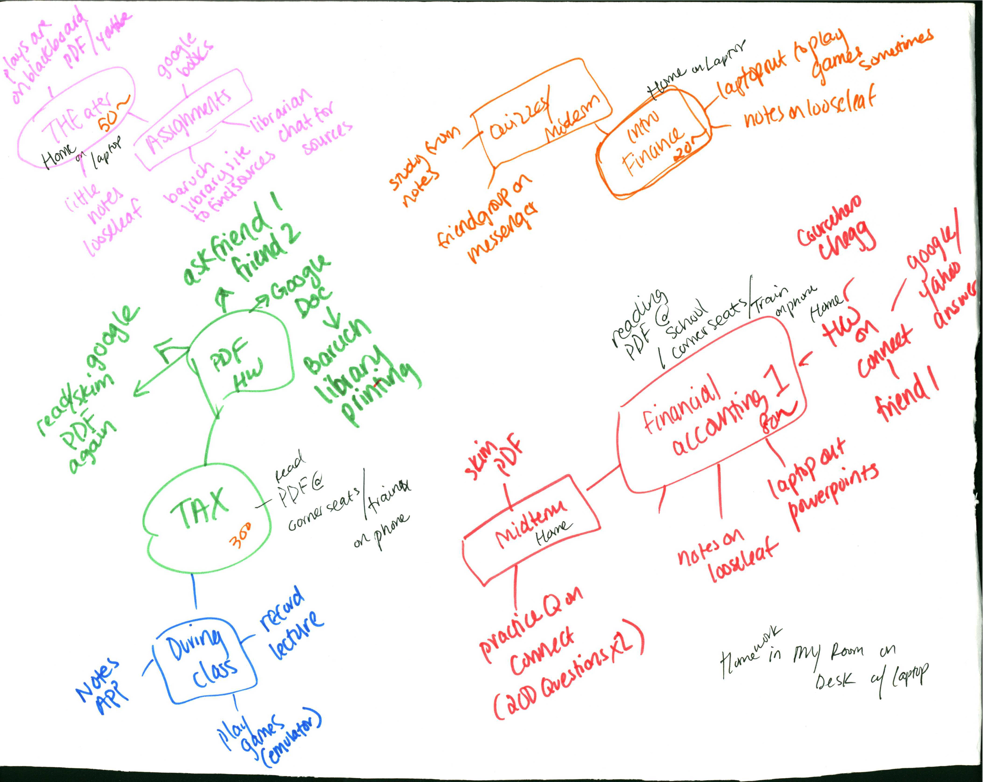 plays are
on blackboard
PDF / youtube
google
books
THEater
50~
Home
on
laptop
Assignments
librarian
chat for
sources
baruch
library site
to find sources
little
notes
looseleaf
Quizzes/
Midterm
study from
notes
friend group on
messenger
Home on Laptop
Intro
Finance
20~
laptop out to play
games
sometimes
notes on looseleaf
ask friend 1
friend 2
Google
Doc
Baruch
library
printing
PDF
HW
google
read/skim
PDF
again
TAX
read
PDF @
corner seats / trains
on phone
During
class
record
lecture
Notes
APP
play
games
(emulator)
coursehero
chegg
google/
yahoo
answer
HW
on
connect
friend 1
Home
reading
PDF @
school
corner seats/
Train
on phone
Financial
accounting 1
80~
laptop out
powerpoints
notes on
looseleaf
skim
PDF
Midterm
Home
practice Q on
connect
(200 Questions x2)
Homework in my Room on
Desk w/ laptop